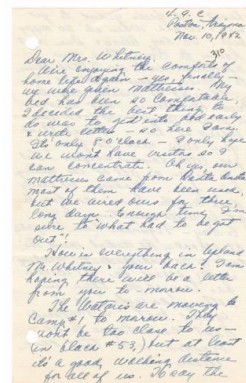 Poston, Arizona
Nov. 10, 1942
310
Dear Mrs. Whitney:
We're enjoying the comforts of
home life again - yes, finally -
we were given mattresses. My
bed has been so comfortable
I decided the best thing to
do was to get into bed early
& write letters - so here I am.
It's only 8 o'clock - I only hope
we won't have visitors so I
can concentrate. Oh, our
mattresses came from Santa Anita
most of them have been used,
but we aired ours for three
long days. Enough time I'm
sure to what had to be got
out!
How is everything in Upland
Mr. Whitney & you back? I am
hoping there will be a letter
from you to-morrow.
The are moving to
Camp #1 to-morrow. They
won't be too close to us -
(in block #53,) but at least
it's a good, walking distance
for all of us. To say the